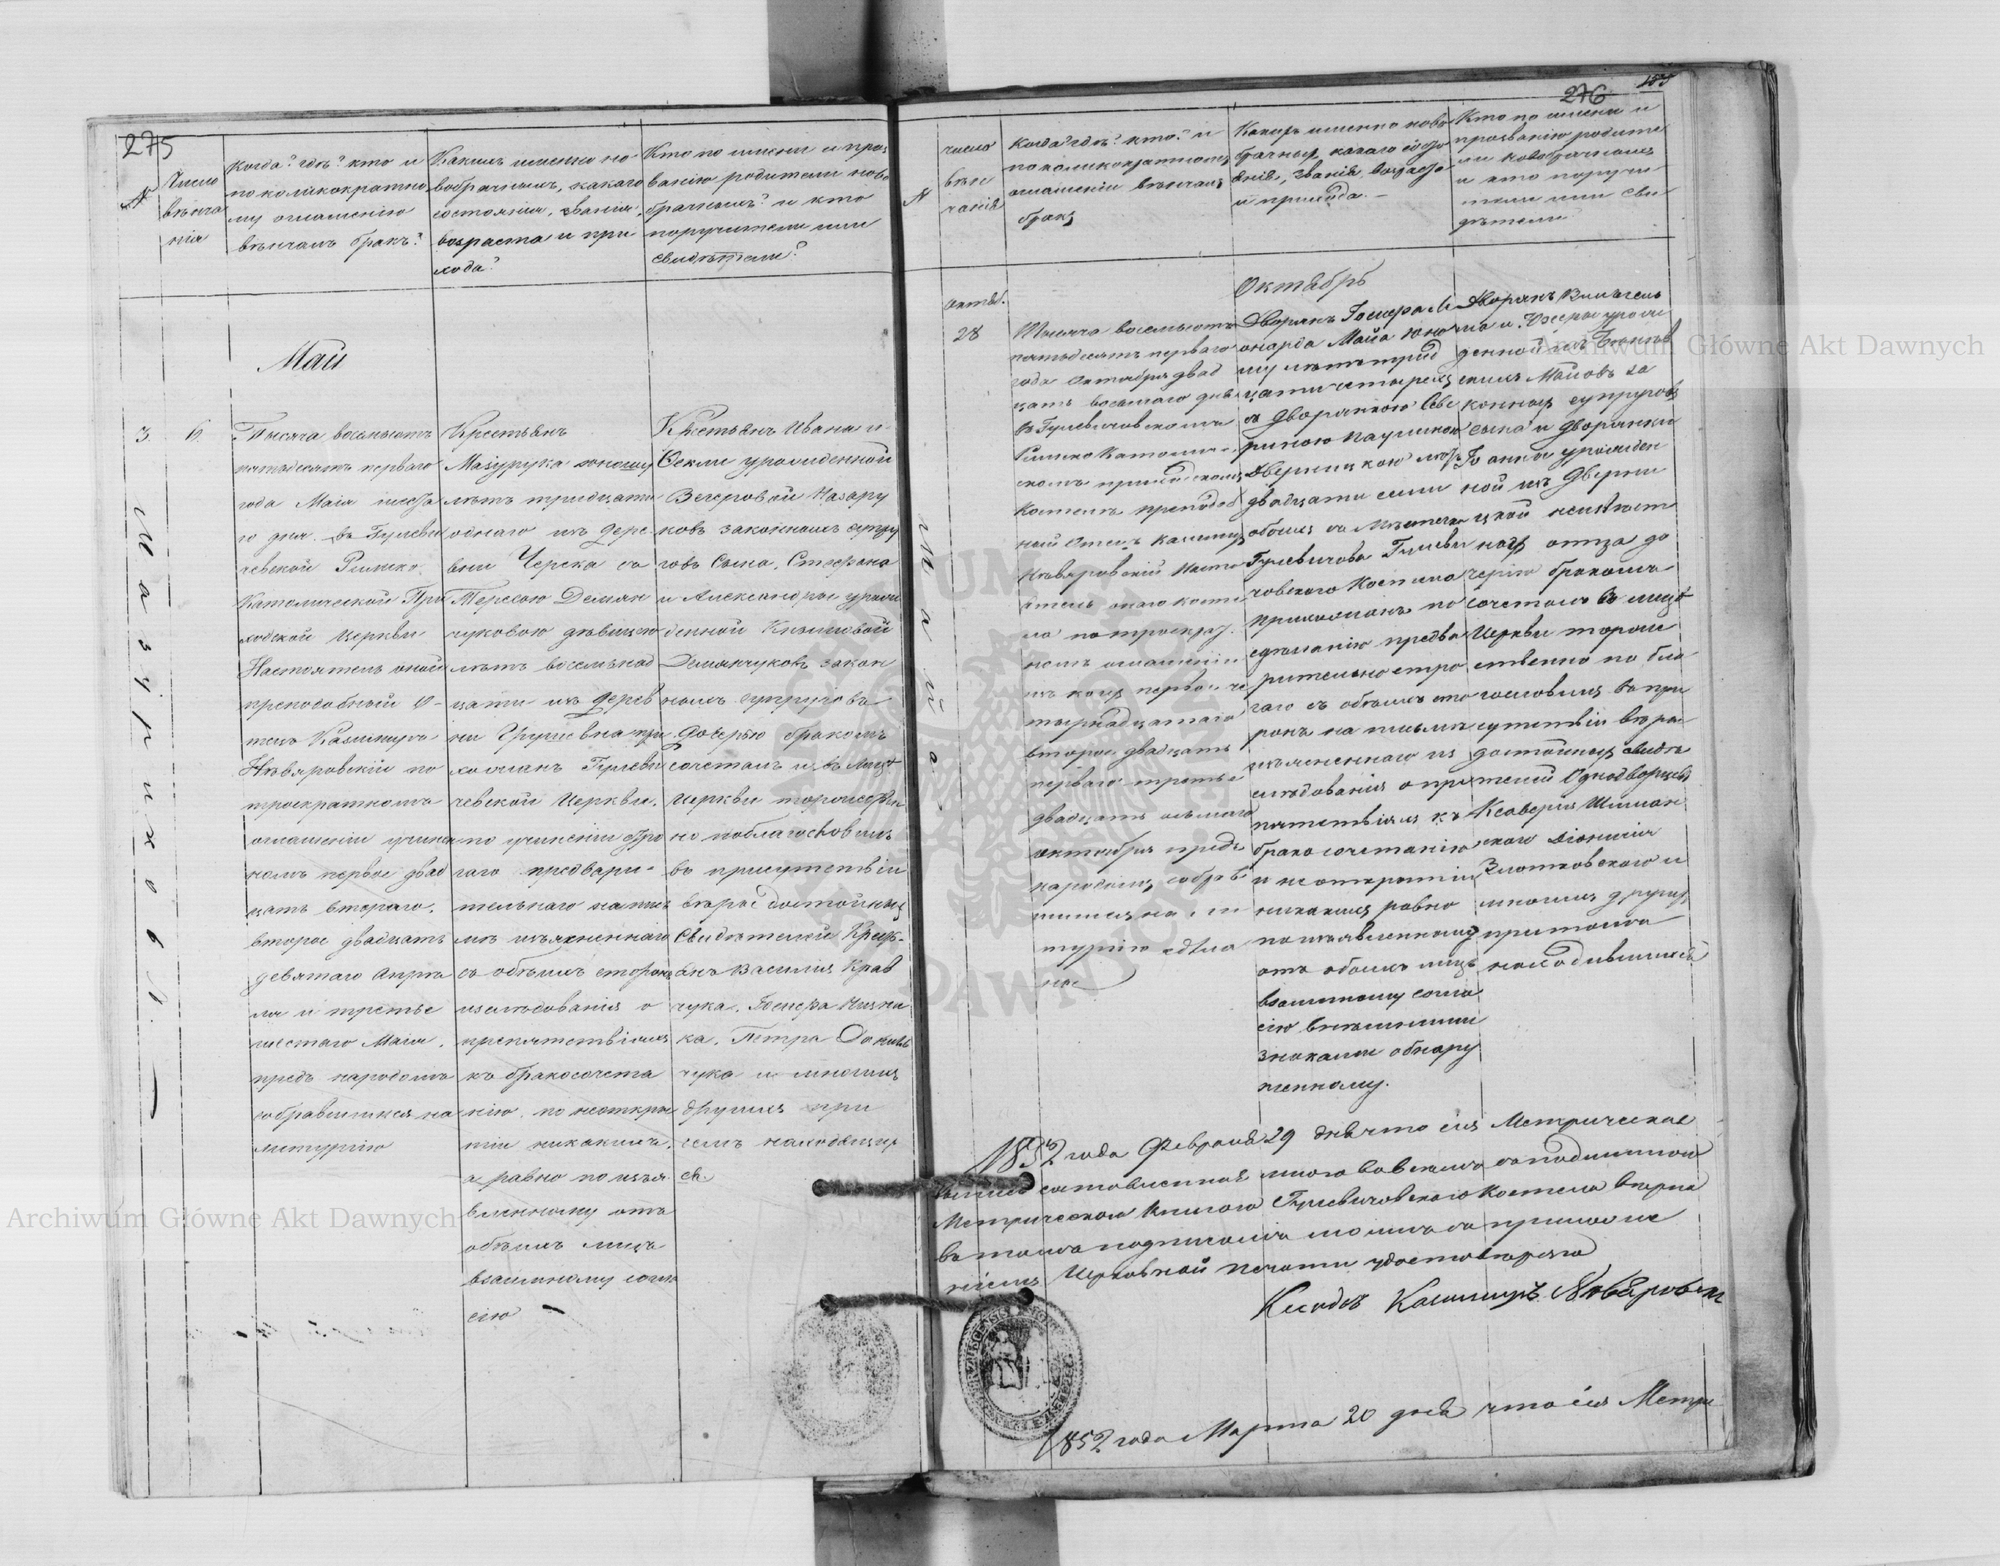 275
№
Число
венча
нія
Когда? где? кто и
по коликократно
му оглашенію
венчалъ бракъ?
Какихъ именно но
вобрачныхъ, какаго
состоянія, званія,
возраста и при
хода?
Кто по имени и проз
ванію родители ново
брачныхъ? и кто
поручители или
свидетели?
Май
3
6
Мазуриковъ.
Тысяча восемьсотъ
пятьдесятъ перваго
года Маія шеста
го дня. въ Гулеви
чевской Римско
Католической При
ходской Церкви
Настоятель оной
преподобный О-
тецъ Казимиръ
Невяровскій по
троекратномъ
оглашеніи учинен
номъ первое двад
цать втораго,
второе двадцать
девятаго Апре
ля и третье
шестаго Маія.
предъ народомъ
собравшимся на
литургію
Крестьянъ
Мазурука юношу
летъ тридцати
однаго изъ дерев
вни Череха съ
Терезою Демян
чуковою девицею
летъ восемьнад
цати изъ дерев
ни при
хожанъ Гулеви
чевской Церкви.
по учиненіи стро
гаго предвари-
тельнаго на пись
ме изъясненнаго
съ обеихъ сторонъ
изследованія о
препятствіяхъ
къ бракосочета
нію, по неоткры
тіи никакихъ,
а равно по изъя
вленному отъ
обеихъ лицъ
взаимному согла
сію
Крестьянъ Ивана и
Феклы урожденной
Назару
ковъ законныхъ супру
говъ сына, Стефана
и Александры урож
денной
Демянчуковъ закон
ныхъ супруговъ
дочерью бракомъ
сочеталъ и въ лице
Церкви торжествен
но поблагословилъ
въ присутствіи
веры достойныхъ
свидетелей Кресть-
янъ Василія Крав
чука,
ка, Петра
чука и многихъ
другихъ при
семъ находящих
ся.
276
№
число
вен
чанія
Когда? где? кто? и
по коликократномъ
оглашеніи венчалъ
бракъ
Какихъ именно ново
брачныхъ, какаго состо
янія, званія, возраста
и прихода.
Кто по имени и
прозванію родите
ли новобрачныхъ
и кто поручи-
тели или сви
детели
Маіовъ.
Октяб.
28
Октябрь
Тысяча восемьсотъ
пятьдесятъ перваго
года Октября двад
цать восьмаго дня
въ Гулевичовскомъ
Римско Католиче-
скомъ приходскомъ
Костеле преподоб
ный Отецъ Казимиръ
Невяровскій Насто
ятель онаго косте
ла по троекрат.
номъ оглашеніи
изъ коихъ первое че
тырнадцатаго
второе двадцать
перваго третье
двадцать осьмаго
октября предъ
народомъ собрав
шимся на ли
тургію сдела
но
Дворянъ Ле
онарда Маіа юно
шу летъ трид
цати четырехъ
съ дворянкою Севе
риною Паулиною
Дверницкою летъ
двадцати семи
обоихъ съ местечка
Гулевичова Гулеви
човскаго Костела
прихожанъ по
сделанію предва
рительно стро
гаго съ обеихъ сто
ронъ на письме
изъясненнаго из
следованія о пре
пятствіяхъ къ
бракосочетанію
и неоткрытіи
никакихъ равно
по изъявленному
отъ обоихъ лицъ
взаимному согла
сію внешними
знаками обнару
женному.
Дворянъ Викентія
и урож
денной изъ
скихъ Маіовъ за
конныхъ супруговъ
сына и дворянки
Іоанны урожден
ной изъ Дверни
цкой неизвест
наго отца до
черію бракомъ
сочеталъ въ лице
Церкви торже
ственно по бла
гословилъ въ при
сутствіи веры
достойныхъ свиде
телей Однодворцевъ
Ксаверія Шиман
скаго Діонисія
Злотковскаго и
многихъ другихъ
при томъ
находившихся
1852 года Февраля 29 дня что сія Метрическая
выпись составленная мною во всемъ съ подлинною
Метрическою Книгою Гулевичовскаго Костела верна
въ томъ подписомъ моимъ съ приложе
ніемъ Церковной печати удостоверяю
Ксендзъ Казимиръ Невяровскій
1852 года Марта 20 дня что сія Метри
Archiwum Główne Akt Dawnych
Archiwum Główne Akt Dawnych